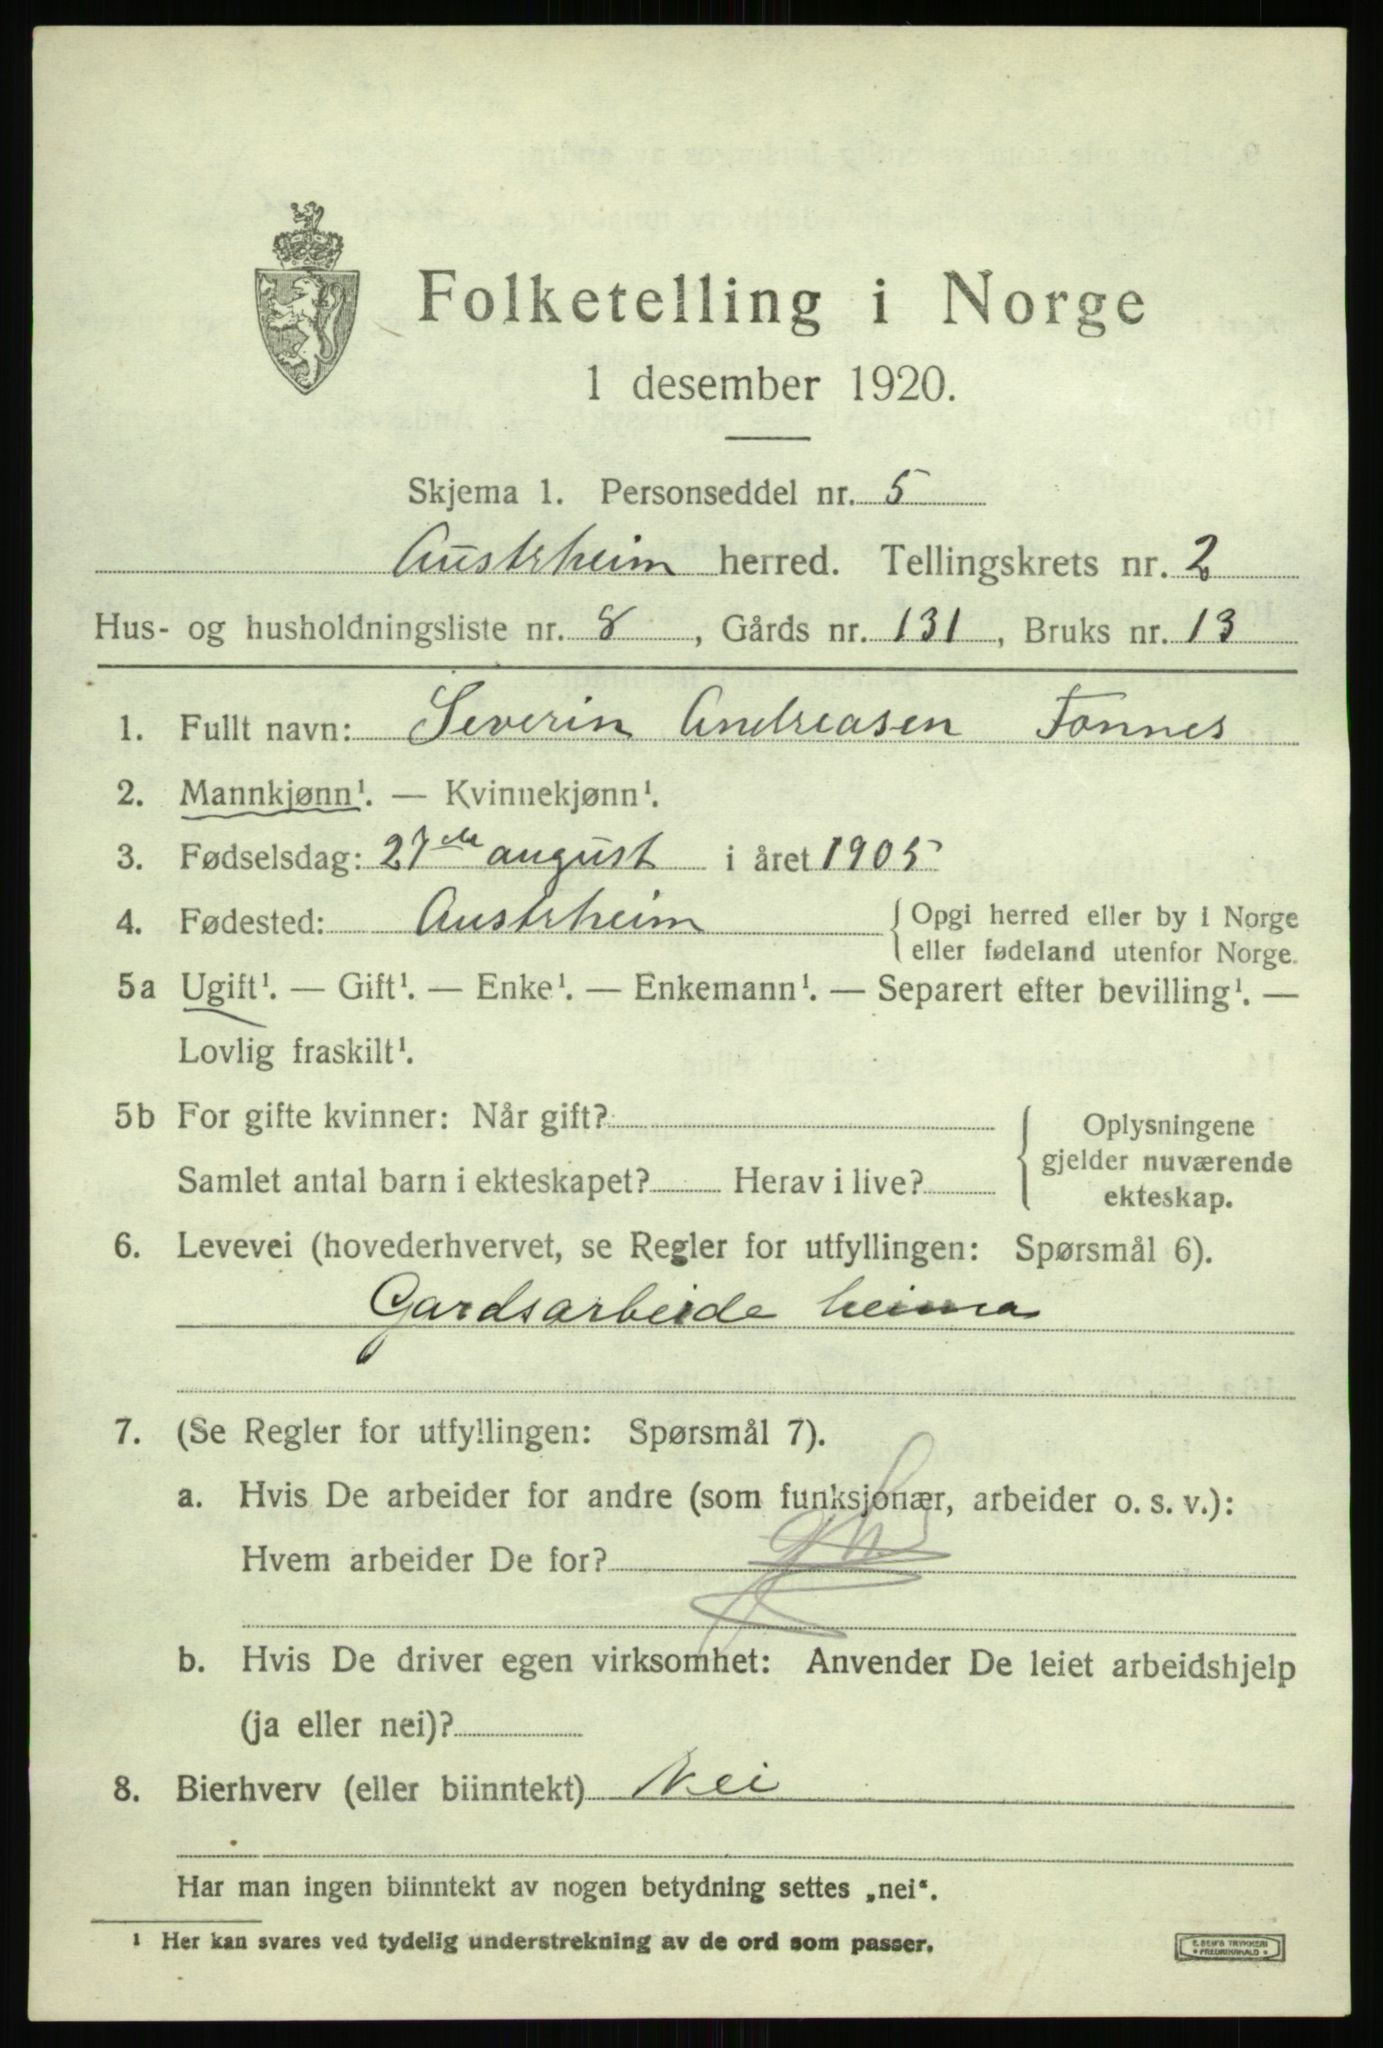 Folketelling i Norge
1 desember 1920.
Skjema 1. Personseddel nr. 5
Austrheim herred. Tellingskrets nr. 2
Hus- og husholdningsliste nr. 8, Gårds nr. 131, Bruks nr. 13
1. Fullt navn: Severin Andreasen Fonnes
2. Mannkjønn¹. — Kvinnekjønn¹.
3. Fødselsdag: 27de august i året 1905
4. Fødested: Austrheim { Opgi herred eller by i Norge
eller fødeland utenfor Norge.
5a Ugift¹. — Gift¹. — Enke¹. — Enkemann¹. — Separert efter bevilling¹. —
Lovlig fraskilt¹.
5b For gifte kvinner: Når gift?
Samlet antal barn i ekteskapet? Herav i live?
Oplysningene
gjelder nuværende
ekteskap.
6. Levevei (hovederhvervet, se Regler for utfyllingen: Spørsmål 6).
Gardsarbeide heima
7. (Se Regler for utfyllingen: Spørsmål 7).
a. Hvis De arbeider for andre (som funksjonær, arbeider o. s. v.):
Hvem arbeider De for?
b. Hvis De driver egen virksomhet: Anvender De leiet arbeidshjelp
(ja eller nei)?
8. Bierhverv (eller biinntekt) Nei
Har man ingen biinntekt av nogen betydning settes „nei“.
¹ Her kan svares ved tydelig understrekning av de ord som passer.
E. SEM'S TRYKKERI
• FREDRIKSHALD •